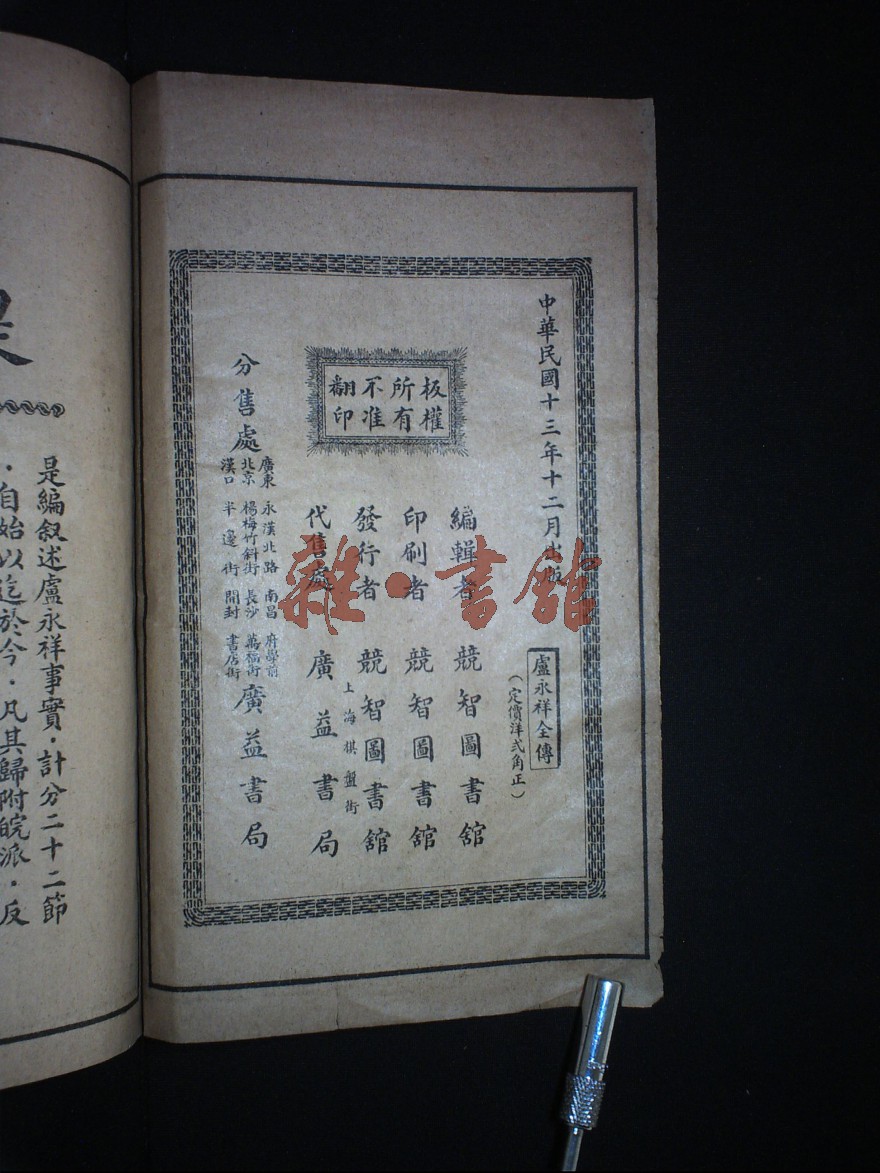 中華民國十三年十二月出版
盧永祥全傳
（定價洋弍角正）
板權
所有
不准
翻印
編輯者 競智圖書舘
印刷者 競智圖書舘
發行者 競智圖書舘
上海棋盤街
代售處 廣益書局
分售處
廣東 永漢北路 南昌 府學前
北京 楊梅竹斜街 長沙 萬福街
漢口 半邊街 開封 書店街
廣益書局
雜·書舘
是編叙述盧永祥事實．計分二十二節
．自始以迄於今．凡其歸附皖派．反